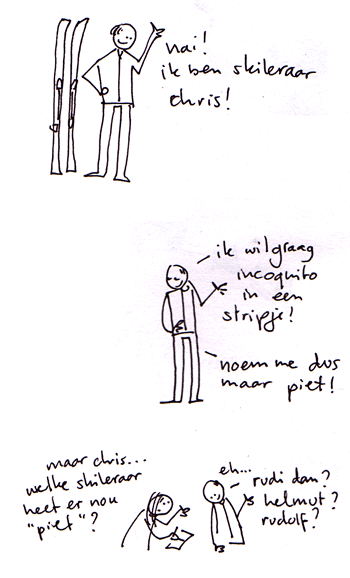 nai!
ik ben skileraar
chris!
ik wil graag
incognito
in een
stripje!
noem me dus
maar piet!
maar chris...
welke skileraar
heet er nou
"piet"?
eh...
rudi dan?
helmut?
rudolf?